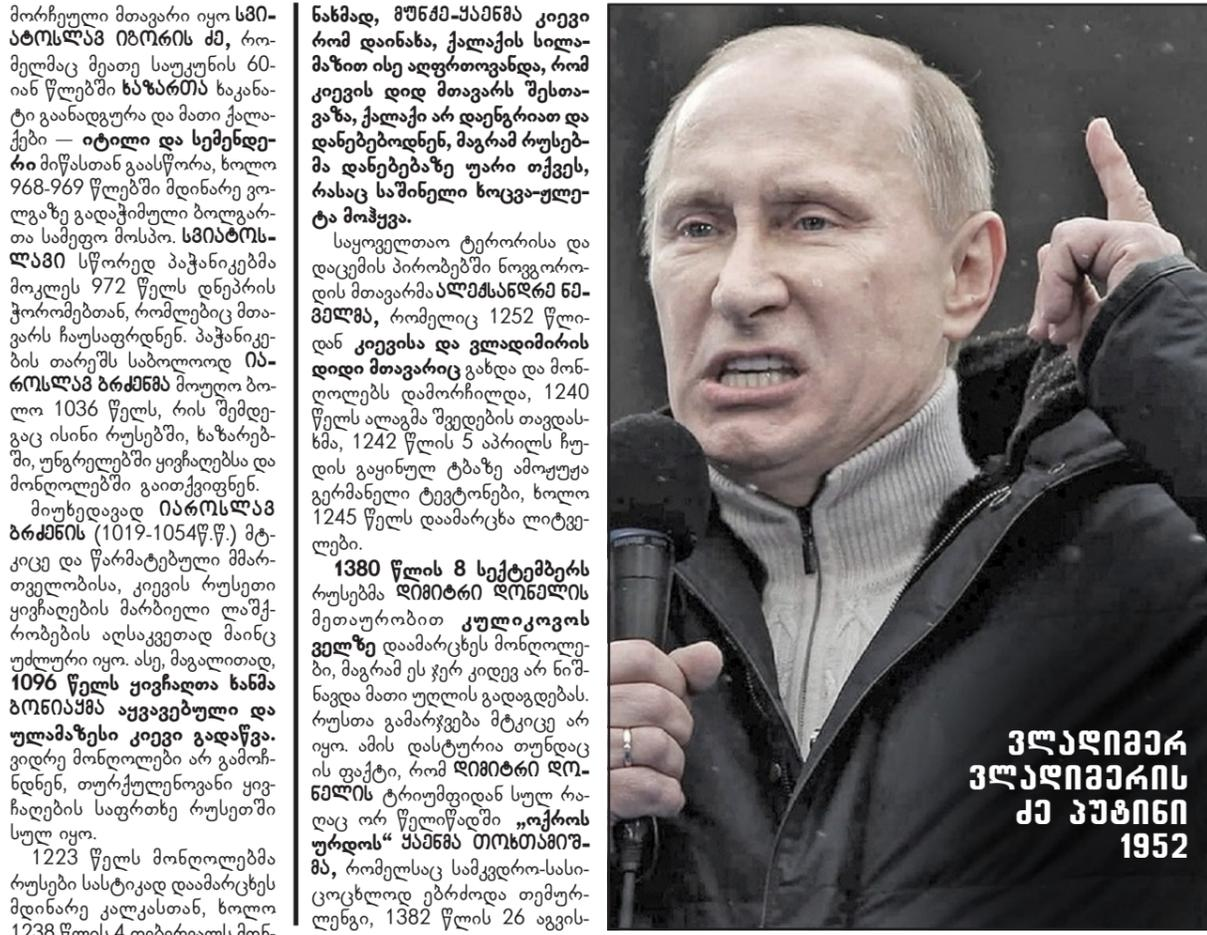 მორჩეული მთავარი იყო სვი-
ატოსლავ იგორის ძე, რო-
მელმაც მეათე საუკუნის 60-
იან წლებში ხაზართა ხაკანა-
ტი გაანადგურა და მათი ქალა-
ქები — იტილი და სემენდე-
რი მიწასთან გაასწორა, ხოლო
968-969 წლებში მდინარე ვო-
ლგაზე გადაჭიმული ბოლგარ-
თა სამეფო მოსპო. სვიატოს-
ლავი სწორედ პაჭანიკებმა
მოკლეს 972 წელს დნეპრის
ჭორომებთან, რომლებიც მთა-
ვარს ჩაუსაფრდნენ. პაჭანიკე-
ბის თარეშს საბოლოოდ ია-
როსლავ ბრძენმა მოუღო ბო-
ლო 1036 წელს, რის შემდე-
გაც ისინი რუსებში, ხაზარებ-
ში, უნგრელებში ყივჩაღებსა და
მონღოლებში გაითქვიფნენ.
მიუხედავად იაროსლავ
ბრძენის (1019-1054წ.წ.) მტ-
კიცე და წარმატებული მმარ-
თველობისა, კიევის რუსეთი
ყივჩაღების მარბიელი ლაშქ-
რობების აღსაკვეთად მაინც
უძლური იყო. ასე, მაგალითად,
1096 წელს ყივჩაღთა ხანმა
ბონიაყმა აყვავებული და
ულამაზესი კიევი გადაწვა.
ვიდრე მონღოლები არ გამოჩ-
ნდნენ, თურქულენოვანი ყივ-
ჩაღების საფრთხე რუსეთში
სულ იყო.
1223 წელს მონღოლებმა
რუსები სასტიკად დაამარცხეს
მდინარე კალკასთან, ხოლო
1238 წლის 4 თებერვალს მონ-
ნახმად, მუნკე-ყაენმა კიევი
რომ დაინახა, ქალაქის სილა-
მაზით ისე აღფრთოვანდა, რომ
კიევის დიდ მთავარს შესთა-
ვაზა, ქალაქი არ დაენგრიათ და
დანებებოდნენ, მაგრამ რუსებ-
მა დანებებაზე უარი თქვეს,
რასაც საშინელი ხოცვა-ჟლე-
ტა მოჰყვა.
საყოველთაო ტერორისა და
დაცემის პირობებში ნოვგორო-
დის მთავარმა ალექსანდრე ნე-
ველმა, რომელიც 1252 წლი-
დან კიევისა და ვლადიმირის
დიდი მთავარიც გახდა და მონ-
ღოლებს დამორჩილდა, 1240
წელს ალაგმა შვედების თავდას-
ხმა, 1242 წლის 5 აპრილს ჩუ-
დის გაყინულ ტბაზე ამოჟუჟა
გერმანელი ტევტონები, ხოლო
1245 წელს დაამარცხა ლიტვე-
ლები.
1380 წლის 8 სექტემბერს
რუსებმა დიმიტრი დონელის
მეთაურობით კულიკოვოს
ველზე დაამარცხეს მონღოლე-
ბი, მაგრამ ეს ჯერ კიდევ არ ნიშ-
ნავდა მათი უღლის გადაგდებას.
რუსთა გამარჯვება მტკიცე არ
იყო. ამის დასტურია თუნდაც
ის ფაქტი, რომ დიმიტრი დო-
ნელის ტრიუმფიდან სულ რა-
ღაც ორ წელიწადში „ოქროს
ურდოს“ ყაენმა თოხთამიშ-
მა, რომელსაც სამკვდრო-სასი-
ცოცხლოდ ებრძოდა თემურ-
ლენგი, 1382 წლის 26 აგვის-
ვლადიმერ
ვლადიმერის
ძე პუტინი
1952